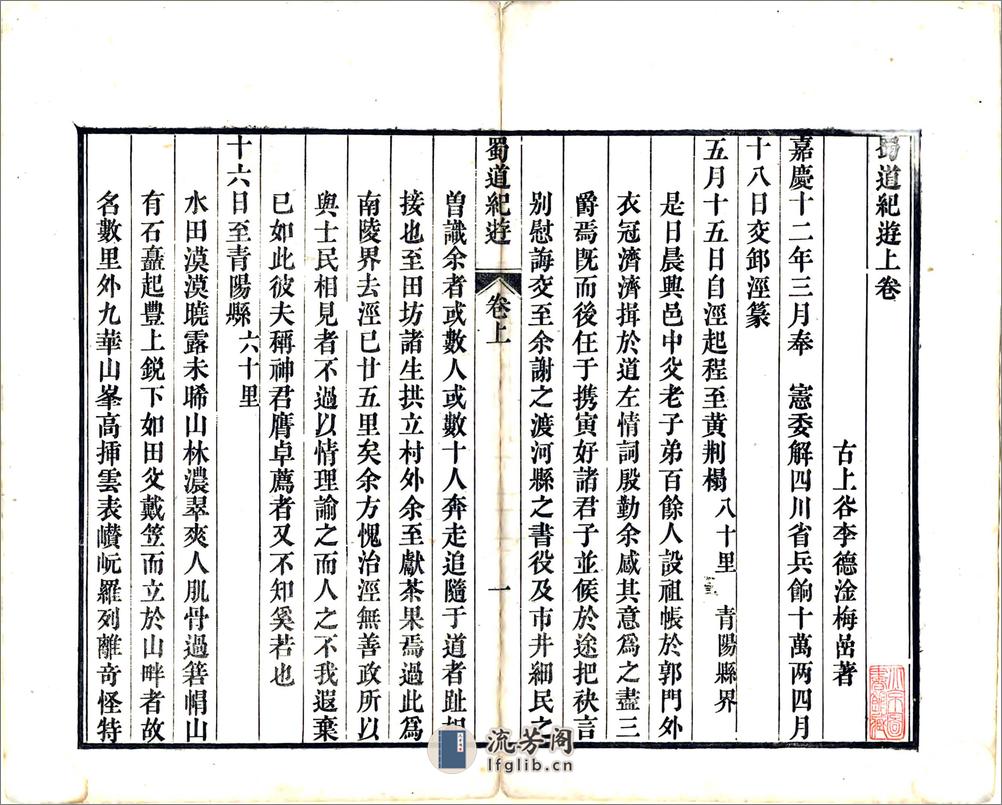 蜀道紀遊上卷
古上谷李德淦梅嵒著
嘉慶十二年三月奉　憲委解四川省兵餉十萬兩四月
十八日交卸涇篆
五月十五日自涇起程至黃荆榻八十里　青陽縣界
是日晨興邑中父老子弟百餘人設祖帳於郭門外
衣冠濟濟揖於道左情詞殷勤余感其意爲之盡三
爵焉旣而後任于携寅好諸君子並候於途把袂言
别慰誨交至余謝之渡河縣之書役及市井細民之
蜀道紀遊　卷上　一
曽識余者或數人或數十人奔走追隨于道者趾相
接也至田坊諸生拱立村外余至獻茶果焉過此爲
南陵界去涇已廿五里矣余方愧治涇無善政所以
與士民相見者不過以情理諭之而人之不我遐棄
已如此彼夫稱神君膺卓薦者又不知奚若也
十六日至青陽縣六十里
水田漠漠曉露未晞山林濃翠爽人肌骨過箬帽山
有石矗起豐上鋭下如田父戴笠而立於山畔者故
名數里外九華山峯高揷雲表巑岏羅列離奇怪特
流芳阁
lfglib.cn